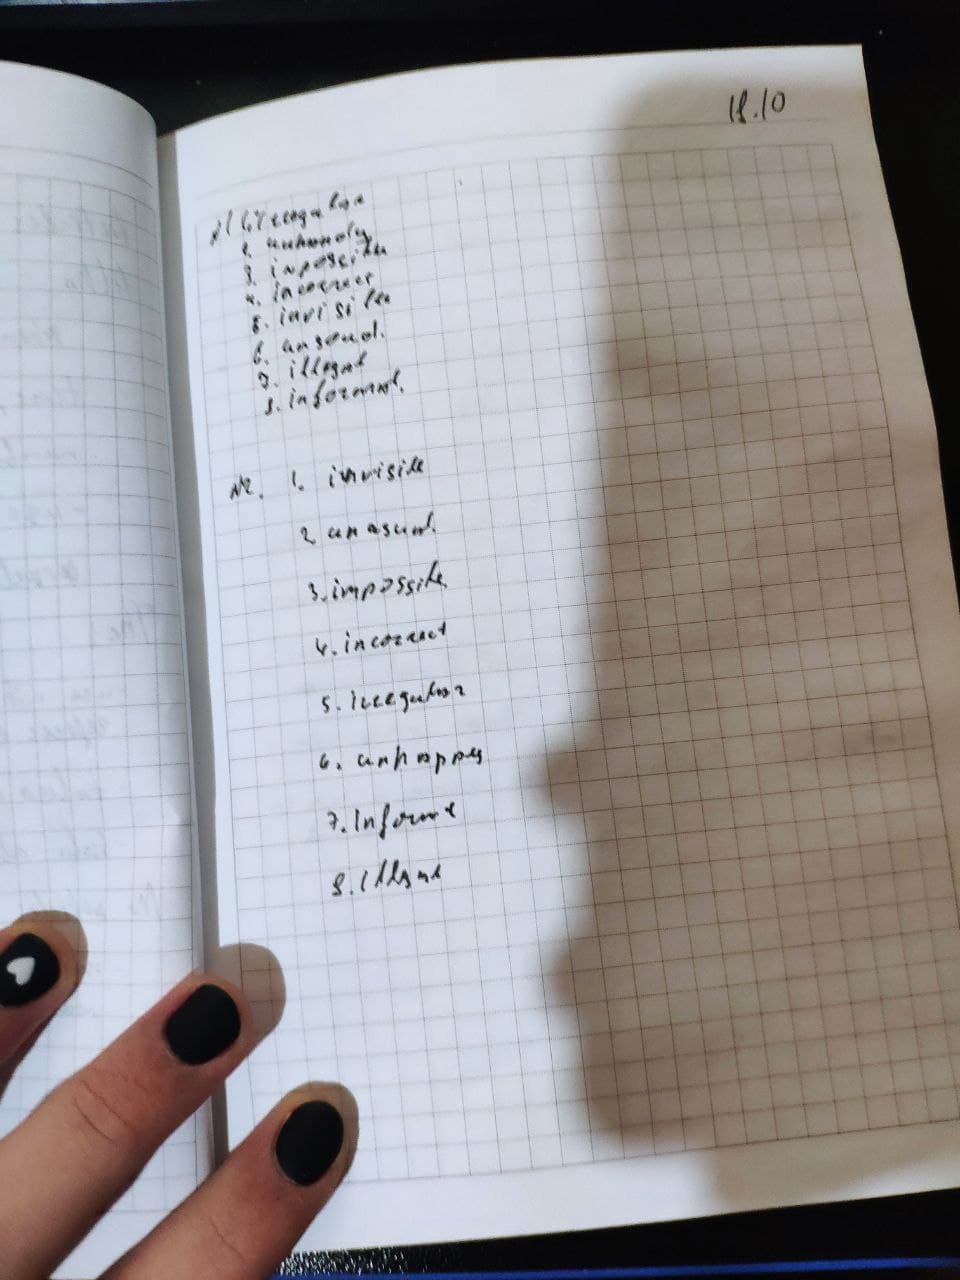 18.10
№1 1. irregular
2. unhandy
3. imposile
4. incorrect
5. invisile
6. unsoud.
7. illegal
8. informal.
№2. 1. invisile
2 unasual.
3. impossile
4. incorrect
5. irregular
6. unhappy
7. informl
8. illegal